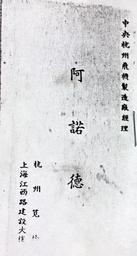 中央杭州飛機製造廠經理
阿諾德
杭州筧橋
上海江西路建設大樓